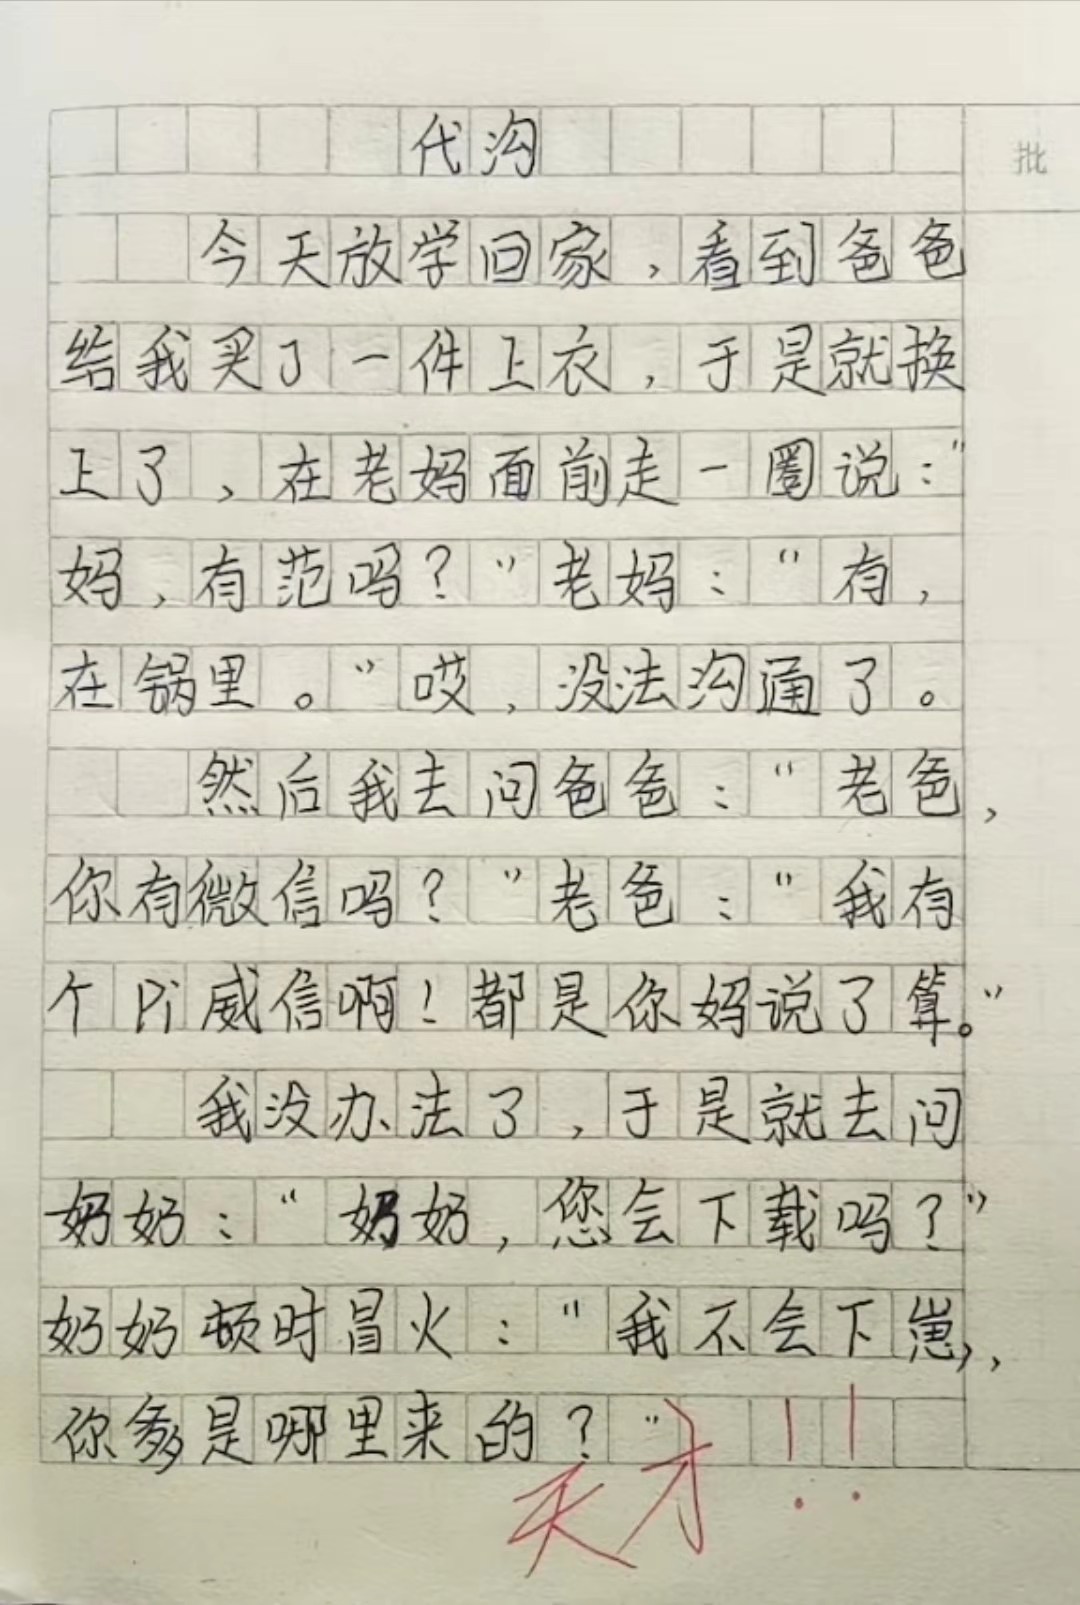 代沟
批
今天放学回家，看到爸爸
给我买了一件上衣，于是就换
上了，在老妈面前走一圈说：“
妈，有范吗？”老妈：“有，
在锅里。”哎，没法沟通了。
然后我去问爸爸：“老爸，
你有微信吗？”老爸：“我有
个Pi威信啊！都是你妈说了算。”
我没办法了，于是就去问
奶奶：“奶奶，您会下载吗？”
奶奶顿时冒火：“我不会下崽，
你爹是哪里来的？”
天才！！